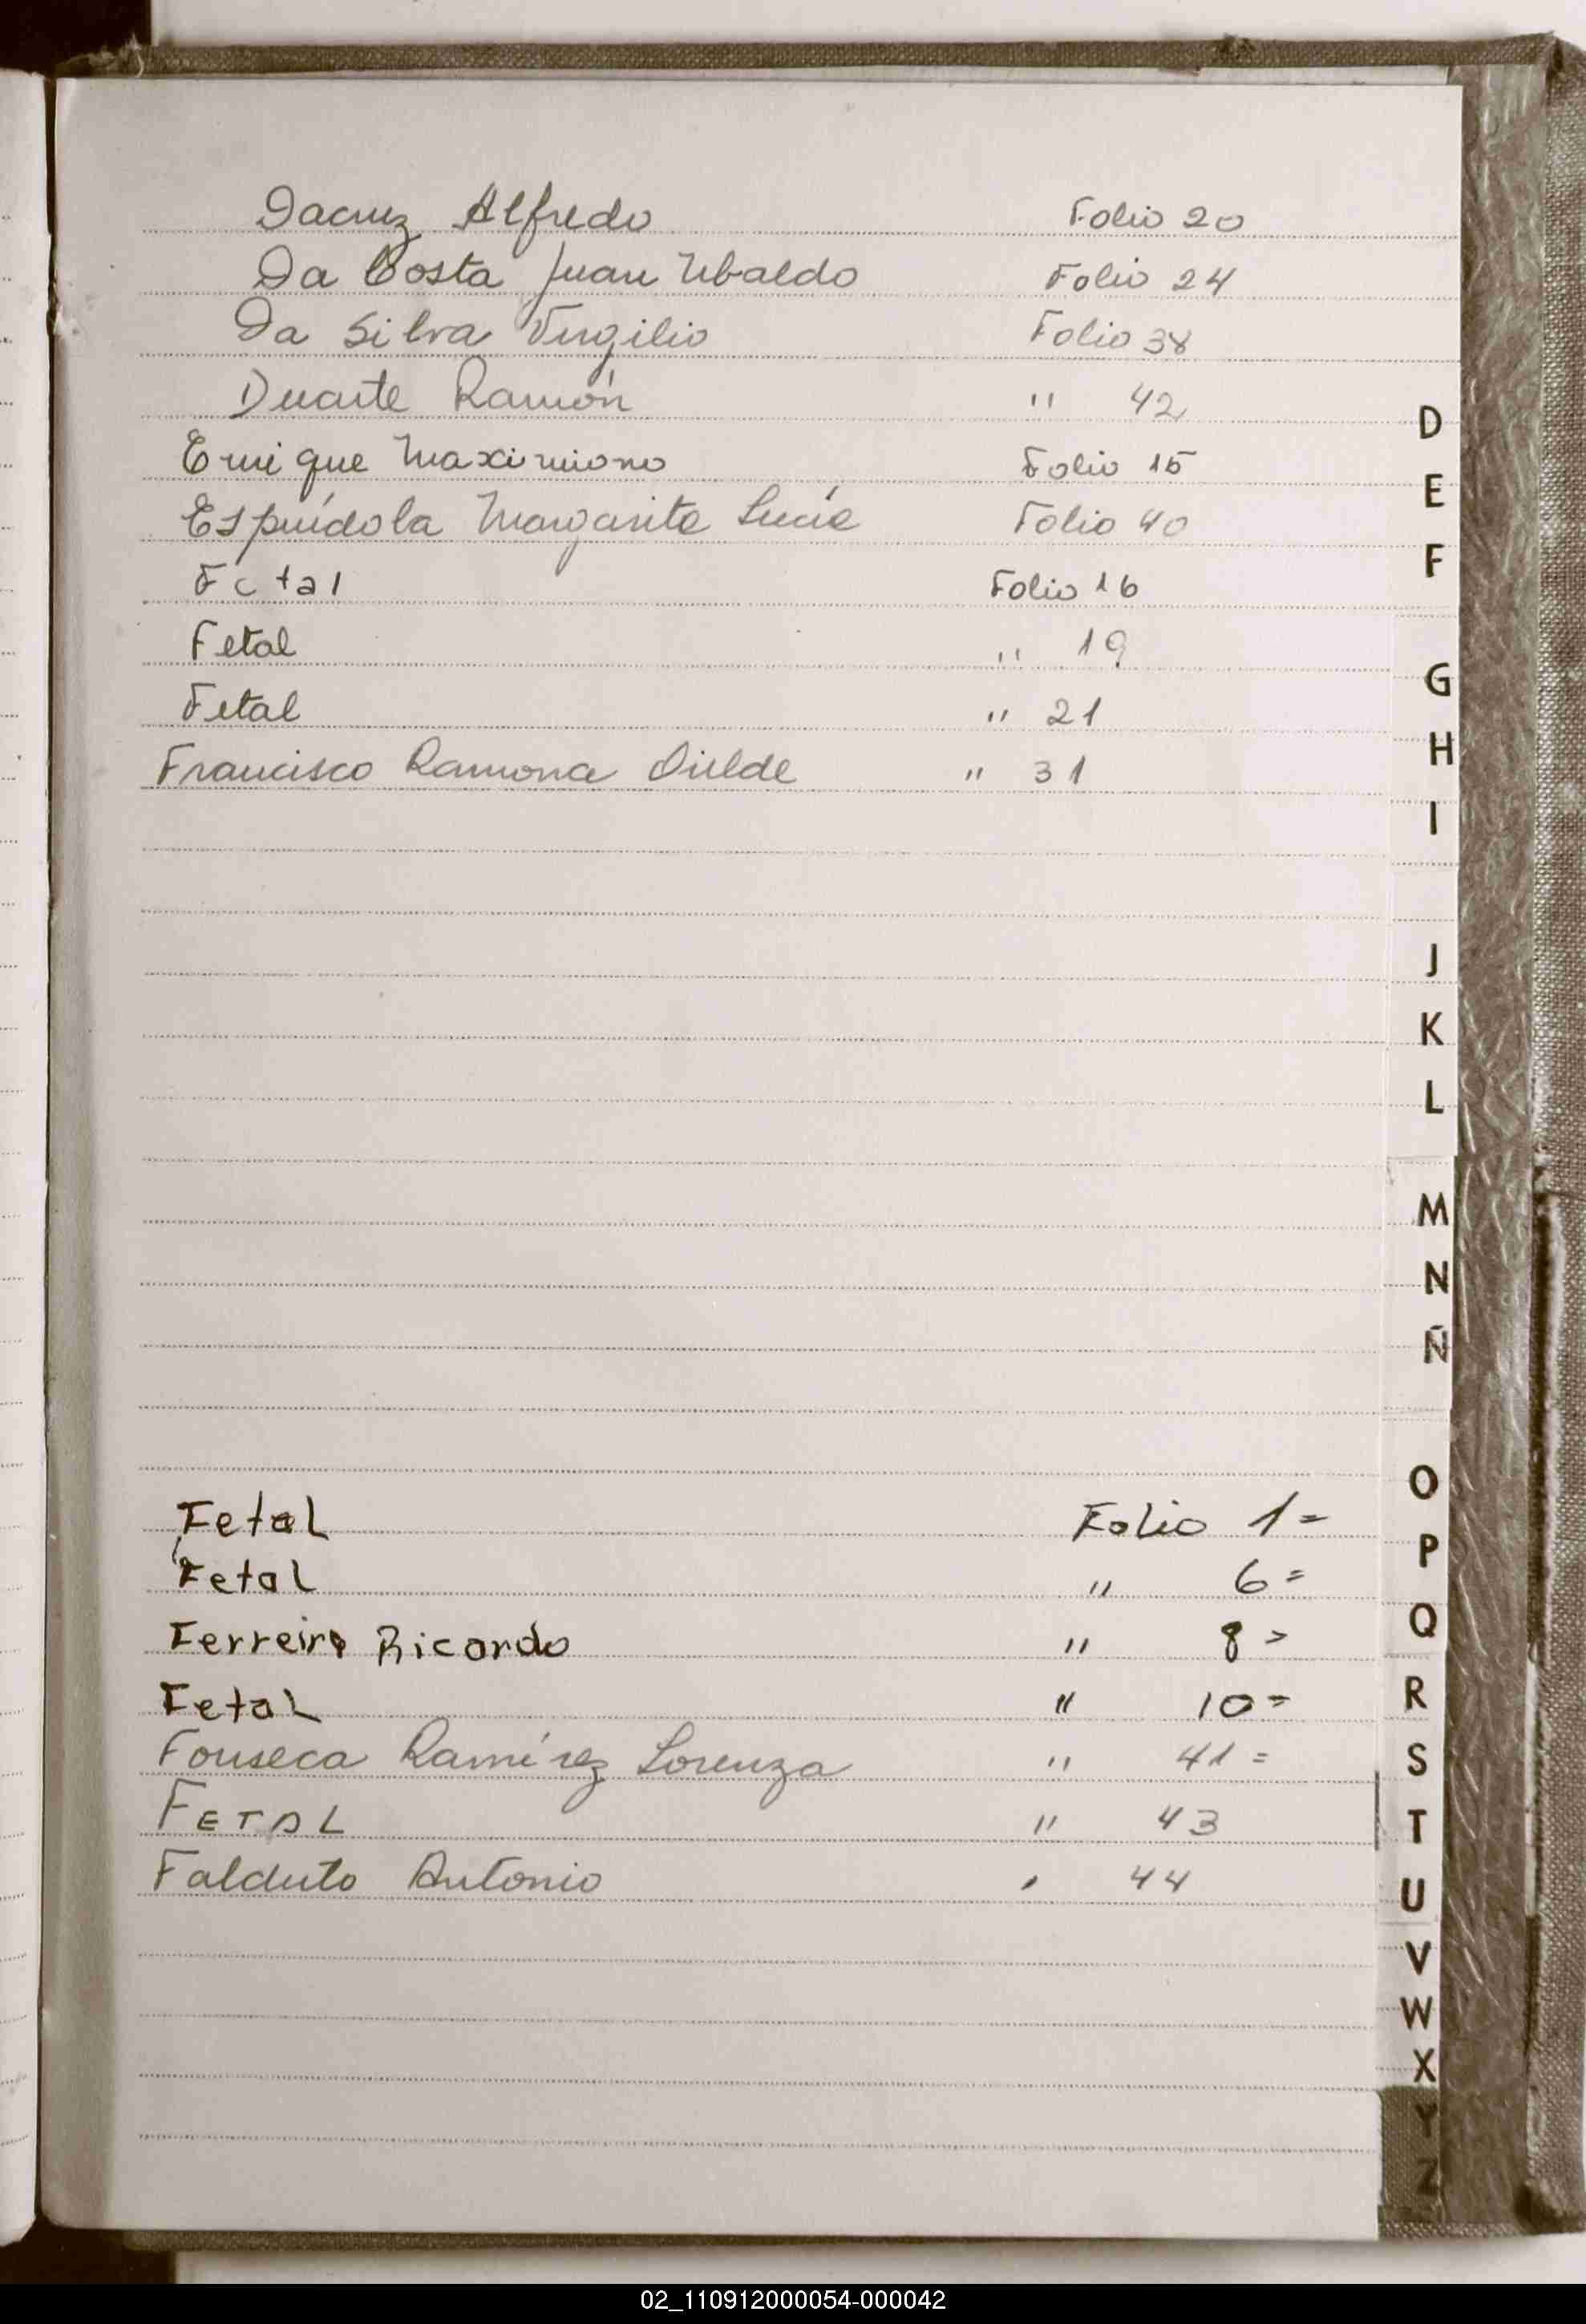 Dacruz Alfredo Folio 20
Da Costa Juan Ubaldo Folio 24
Da Silva Virgilio Folio 38
Duarte Ramón " 42
Enrique Maximiano Folio 15
Espíndola Margarita Lucía Folio 40
Fetal Folio 16
Fetal " 19
Fetal " 21
Francisco Ramona " 31
Fetal Folio 1=
Fetal " 6=
Ferreira Ricardo " 8=
Fetal " 10=
Fonseca Ramírez Lorenza " 41=
FETAL " 43
Falduto Antonio " 44
D
E
F
G
H
I
J
K
L
M
N
Ñ
O
P
Q
R
S
T
U
V
W
X
Y
Z
02_110912000054-000042